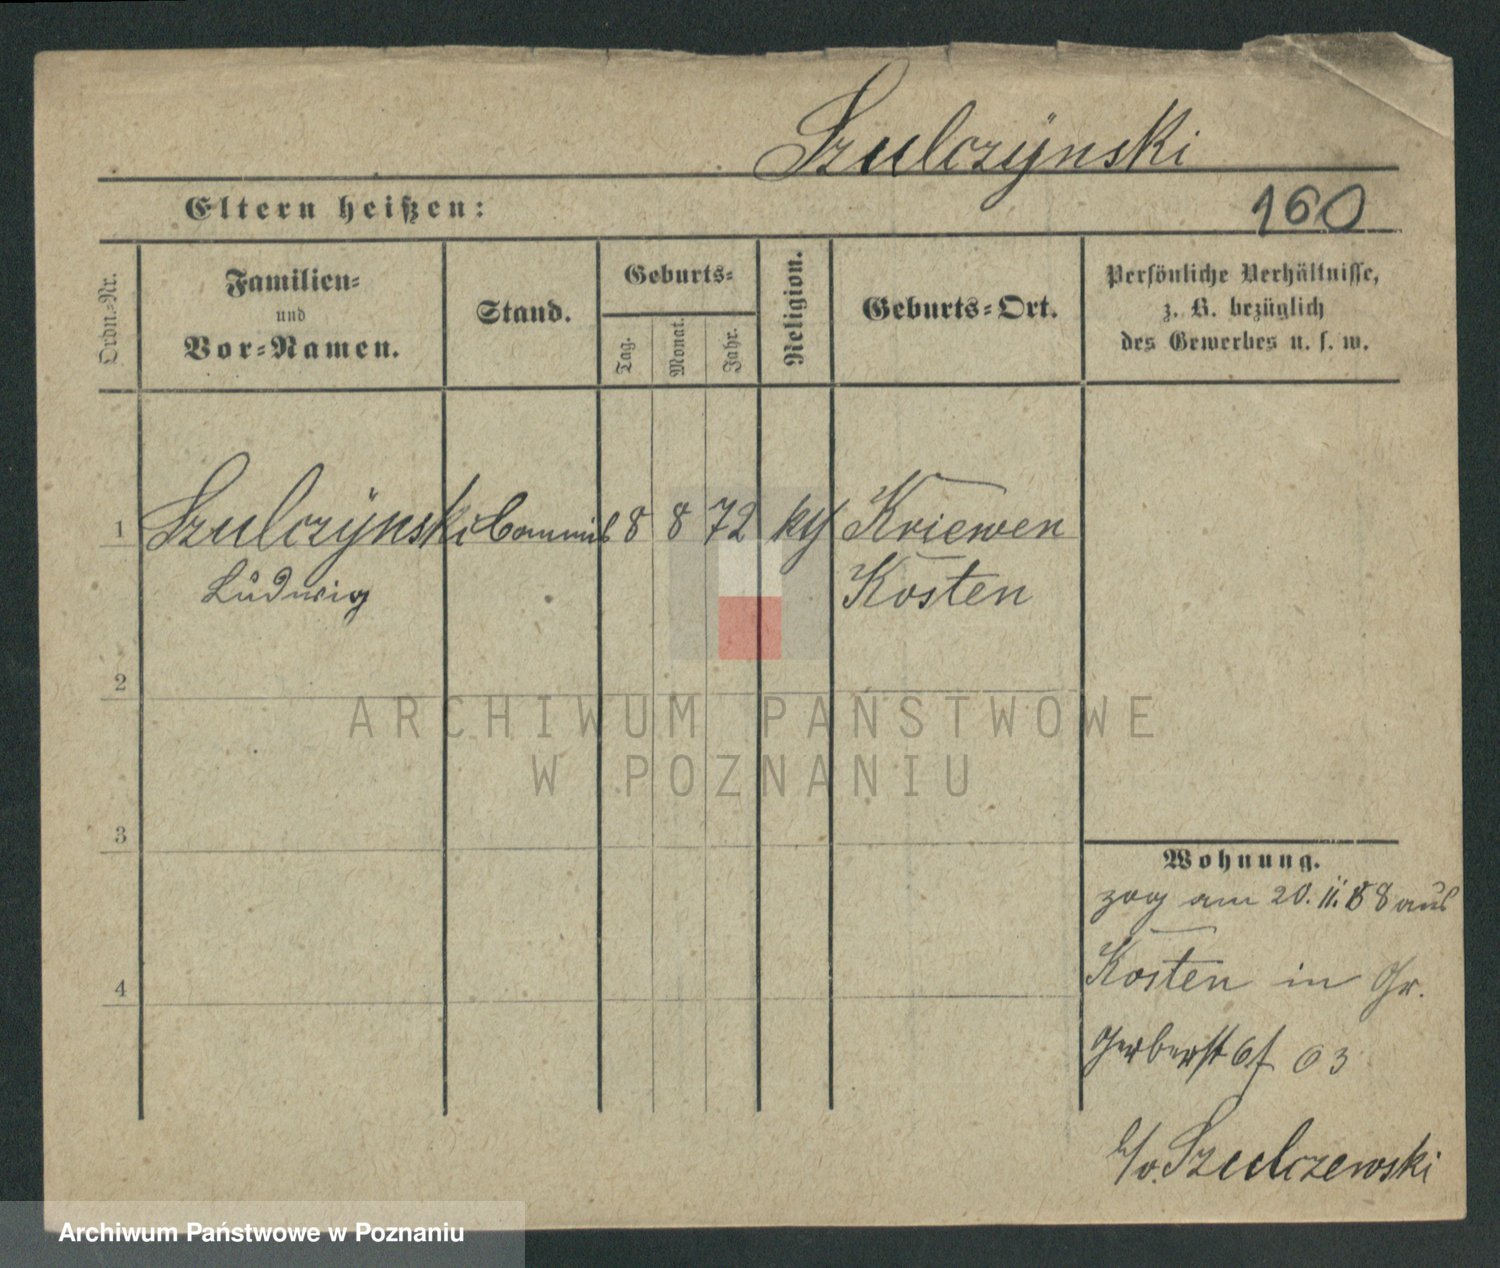 Szulczÿnski
Eltern heißen:
160
Ordn.-Nr.
Familien-
und
Vor-Namen.
Stand.
Geburts-
Tag.
Monat.
Jahr.
Religion.
Geburts-Ort.
Persönliche Verhältnisse,
z. B. bezüglich
des Gewerbes u. s. w.
1 Szulczÿnski Commis 8 8 72 kþ Kriewen
Ludwig Kosten
2
ARCHIWUM PAŃSTWOWE
W POZNANIU
3
Wohnung.
zog am 20. 11. 88 aus
4
Kosten in Gr.
Gerberst 03
b/v. Szulczewski
Archiwum Państwowe w Poznaniu